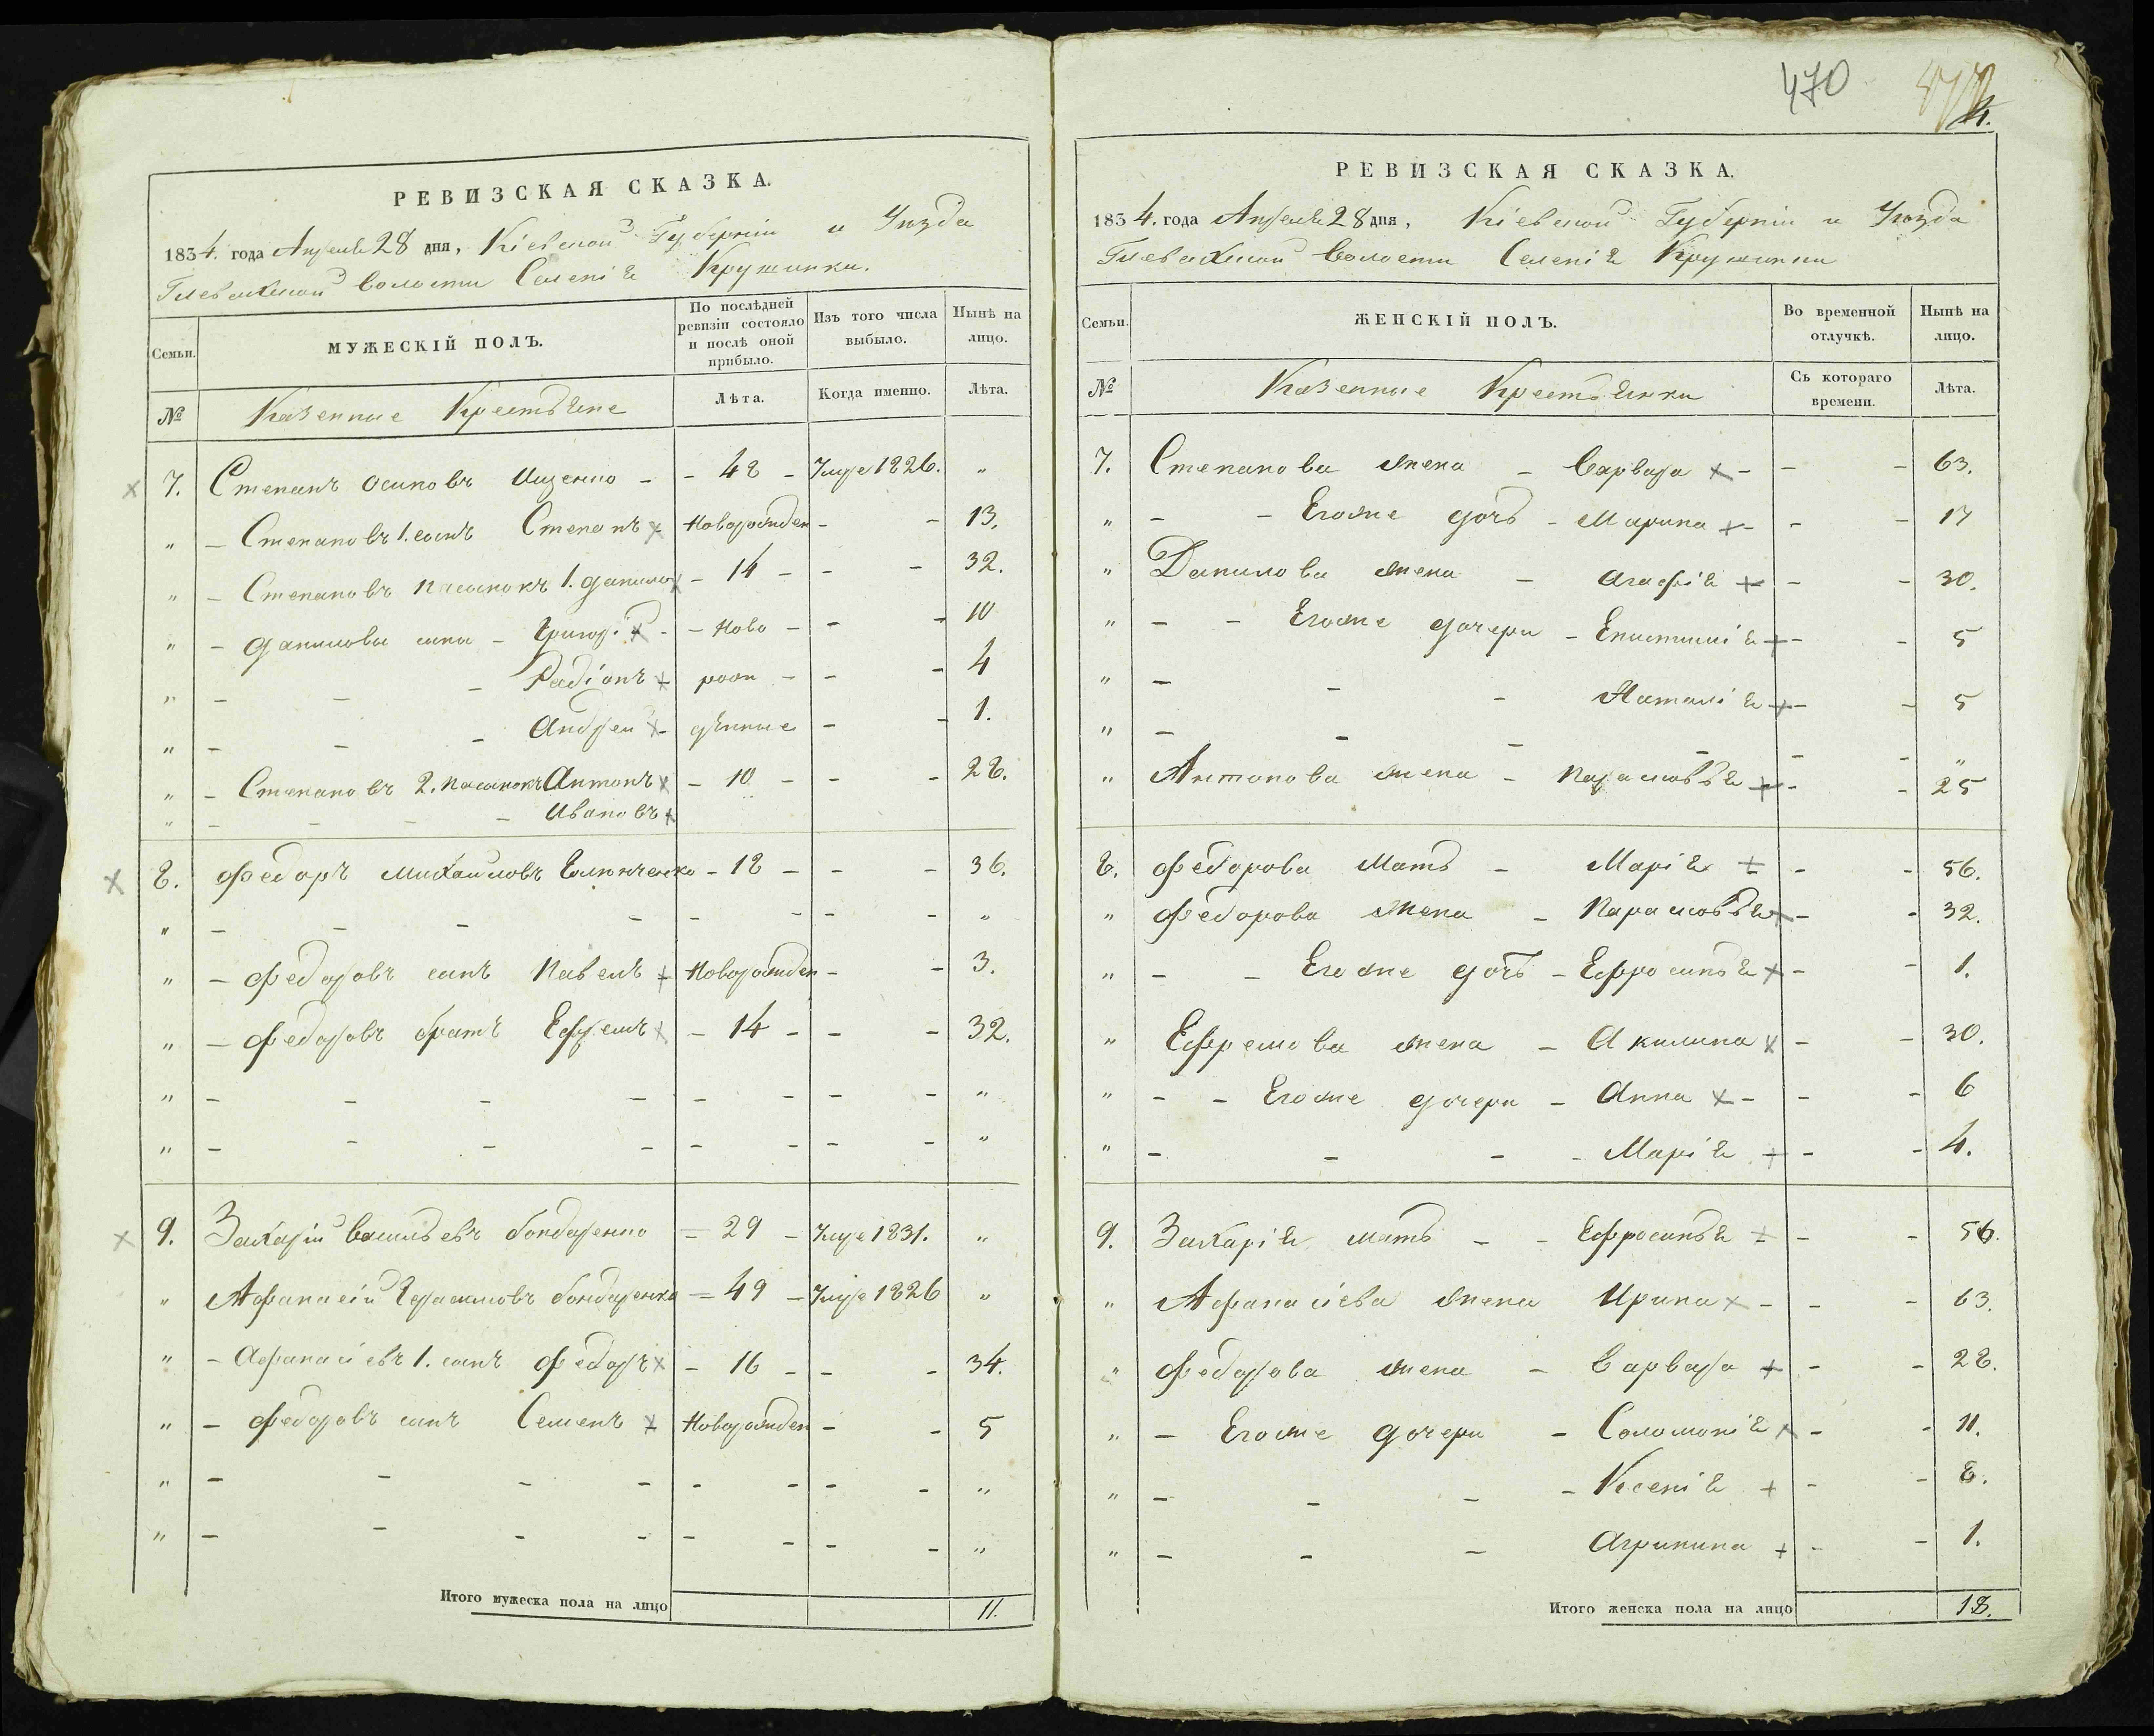 470
4.
РЕВИЗСКАЯ СКАЗКА.
1834. года Апреля 28 дня, Кіевской Губерніи и Уезда
Глевахской волости Селенія Крушинки.
Семьи.
МУЖЕСКІЙ ПОЛЪ.
По послѣдней ревизіи состояло и послѣ оной прибыло.
Изъ того числа выбыло.
Нынѣ на лицо.
№ Казенные Крестьяне Лѣта. Когда именно. Лѣта.
7. Степанъ Осиповъ Ищенко - - 48 - Умре 1826. "
" - Степановъ 1. сынъ Степанъ Новорожден - - 13.
" - Степановъ пасынокъ 1. Данило - 14 - - - 32.
" - Даниловы сыны - Григорій - - Ново - - - 10
" - - - Радіонъ рож - - - 4
" - - - Андрей - дѣнные - - 1.
" - Степановъ 2. пасынокъ Антонъ - 10 - - - 28.
" - - - - Ивановъ
8. Федоръ Михайловъ - 18 - - - 36.
" - - - - - - - - "
" - Федоровъ сынъ Павелъ Новорожден - - 3.
" - Федоровъ братъ Ефремъ - 14 - - - 32.
" - - - - - - - - "
" - - - - - - - - "
9. Захарій Васильевъ Бондаренко = 29 - Умре 1831. "
" Афанасій Герасимовъ Бондаренко = 49 - Умре 1826 "
" - Афанасіевъ 1. сынъ Федоръ - 16 - - - 34.
" - Федоровъ сынъ Семенъ Новорожден - - 5
" - - - - - - - - "
" - - - - - - - - "
Итого мужеска пола на лицо 11.
РЕВИЗСКАЯ СКАЗКА.
1834. года Апреля 28 дня, Кіевской Губерніи и Уезда
Глевахской Волости Селенія Крушинки
Семьи.
ЖЕНСКІЙ ПОЛЪ.
Во временной отлучкѣ.
Нынѣ на лицо.
№ Казенные Крестьянки Съ котораго времени. Лѣта.
7. Степанова жена - Варвара - - - 63.
" - - Егоже дочь - Марина - - - 17
" Данилова жена - Агафія - - 30.
" - - Егоже дочери - Епистимія - - 5
" - - - Наталія - - 5
" - - - - - - "
" Антонова жена - Парасковья - - 25
8. Федорова Мать - Марія - - 56.
" Федорова жена - Парасковья - - 32.
" - - Егоже дочь - Ефросинья - - 1.
" Ефремова жена - Акилина - - 30.
" - - Егоже дочери - Анна - - - 6
" - - - - Марія - - 4.
9. Захарія мать - - Ефросинья - - 56.
" Афанасіева жена Ирина - - - 63.
" Федорова жена - Варвара - - 28.
" - Егоже дочери - Соломонія - - 11.
" - - - - Ксенія - - 8.
" - - - Агрипина - - 1.
Итого женска пола на лицо 18.